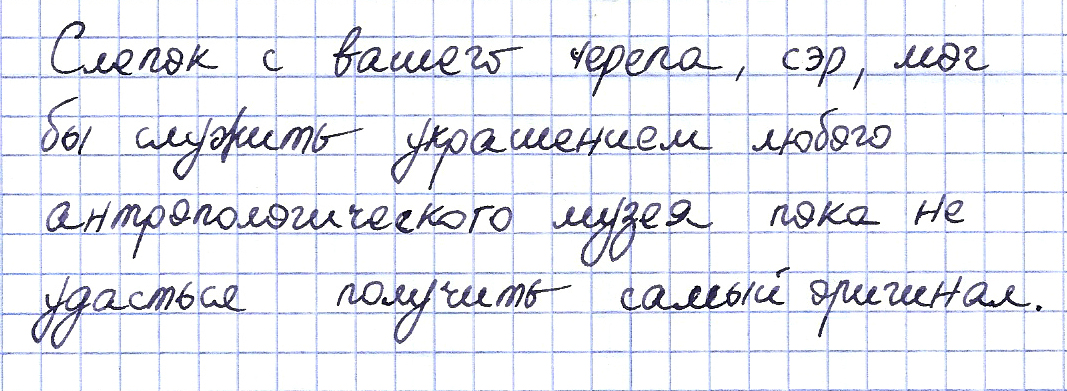 Слепок с вашего черепа, сэр, мог
бы служить украшением любого
антропологического музея пока не
удасться получить самый оригинал.